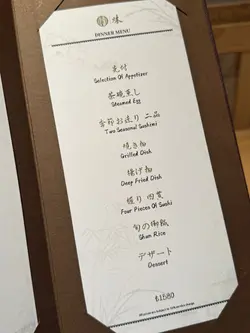 味
DINNER MENU
先付
Selection Of Appetizer
茶碗蒸し
Steamed Egg
季節お造り 二品
Two Seasonal Sashimi
焼き物
Grilled Dish
揚げ物
Deep Fried Dish
握り 四貫
Four Pieces Of Sushi
旬の御飯
Shun Rice
デザート
Dessert
฿1,580